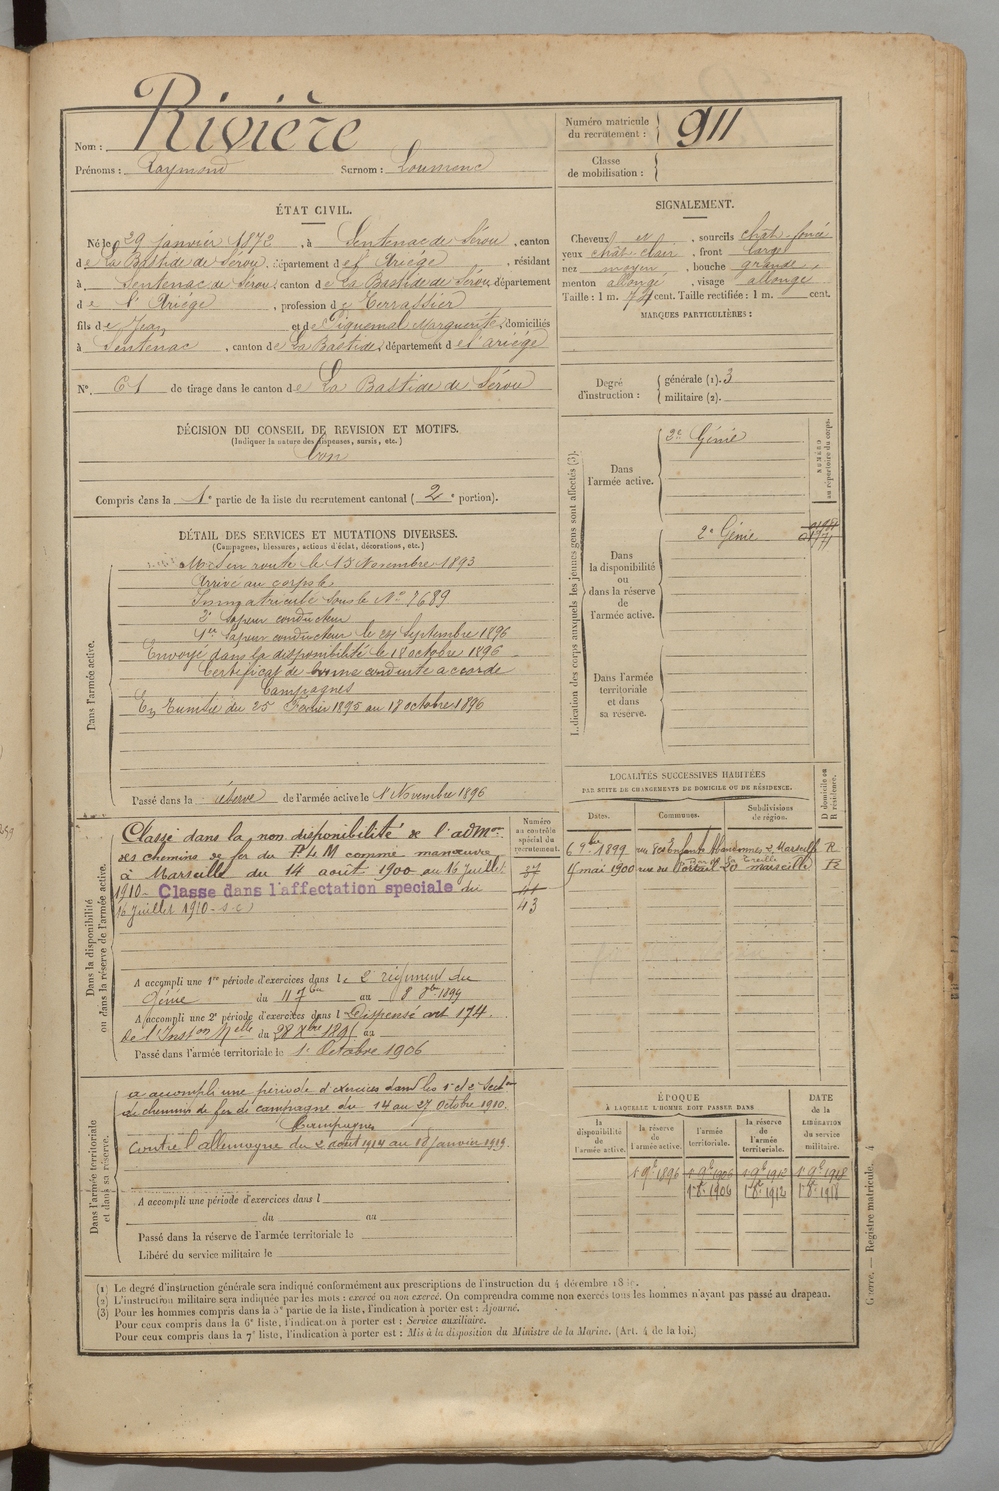 Nom : Rivière
Prénoms : Raymond Surnom : Loumenc
Numéro matricule du recrutement : 911
Classe de mobilisation :
ÉTAT CIVIL.
Né le 29 janvier 1872, à Sentenac de Sérou, canton
de La Bastide de Sérou, département de l'Ariège, résidant
à Sentenac de Sérou, canton de La Bastide de Sérou, département
de l'Ariège, profession de Terrassier
fils de Jean et de Piquemal Marguerite, domiciliés
à Sentenac, canton de La Bastide, département de l'ariège
No. 61 de tirage dans le canton de La Bastide de Sérou
SIGNALEMENT.
Cheveux et, sourcils chât. foncé
yeux chât. clair, front large
nez moyen, bouche grande,
menton allongé, visage allongé
Taille : 1 m. 74 cent. Taille rectifiée : 1 m. cent.
MARQUES PARTICULIÈRES :
Degré d'instruction : générale (1). 3
militaire (2).
DÉCISION DU CONSEIL DE REVISION ET MOTIFS.
(Indiquer la nature des dispenses, sursis, etc.)
bon
Compris dans la 1e partie de la liste du recrutement cantonal (2e portion).
DÉTAIL DES SERVICES ET MUTATIONS DIVERSES.
(Campagnes, blessures, actions d'éclat, décorations, etc.)
Dans l'armée active.
Mis en route le 15 Novembre 1893
Arrivé au corps le
Immatriculé sous le No 7689
2e Sapeur conducteur
1er Sapeur conducteur le 24 Septembre 1896
Envoyé dans la disponibilité le 18 octobre 1896
Certificat de bonne conduite accordé
Campagnes
En Tunisie du 25 Février 1895 au 18 octobre 1896
Passé dans la réserve de l'armée active le 1er Novembre 1896
Indication des corps auxquels les jeunes gens sont affectés (3).
NUMÉRO au répertoire du corps.
Dans l'armée active.
2e Génie
Dans la disponibilité ou dans la réserve de l'armée active.
2e Génie
Dans l'armée territoriale et dans sa réserve.
Dans la disponibilité ou dans la réserve de l'armée active.
Numéro au contrôle spécial du recrutement.
Classé dans la non disponibilité de l'admon
des chemins de fer du P.L.M comme manœuvre
à Marseille du 14 août 1900 au 16 Juillet
1910 - Classé dans l'affectation speciale du
16 Juillet 1910 - s.c
37
41
43
A accompli une 1re période d'exercices dans le 2e régiment du
Génie du 11 7bre au 8 8bre 1899
A accompli une 2e période d'exercices dans l Dispensé art 174.
de l'Inston Melle du 28 Xbre 1895 au
Passé dans l'armée territoriale le 1er Octobre 1906
LOCALITÉS SUCCESSIVES HABITÉES
PAR SUITE DE CHANGEMENTS DE DOMICILE OU DE RÉSIDENCE.
Dates. Communes. Subdivisions de région. D domicile ou R résidence.
6 9bre 1899 rue des Enfants Abandonnés 2 Marseille R
4 mai 1900 rue du Portail 20 Marseille R
Dans l'armée territoriale et dans sa réserve.
a accompli une période d'exercices dans les 1e et 2e Secton
de chemins de fer de campagne du 14 au 27 Octobre 1910.
Campagnes
Contre l'allemagne du 2 août 1914 au 10 janvier 1919.
A accompli une période d'exercices dans l
du au
Passé dans la réserve de l'armée territoriale le
Libéré du service militaire le
ÉPOQUE
À LAQUELLE L'HOMME DOIT PASSER DANS
DATE de la LIBÉRATION du service militaire.
la disponibilité de l'armée active. la réserve de l'armée active. l'armée territoriale. la réserve de l'armée territoriale.
1er 9bre 1896 1er 9bre 1906 1er 9bre 1912 1er 9bre 1918
1er 8bre 1906 1er 8bre 1912 1er 8bre 1918
(1) Le degré d'instruction générale sera indiqué conformément aux prescriptions de l'instruction du 4 décembre
(2) L'instruction militaire sera indiquée par les mots : exercé ou non exercé. On comprendra comme non exercés tous les hommes n'ayant pas passé au drapeau.
(3) Pour les hommes compris dans la 5e partie de la liste, l'indication à porter est : Ajourné.
Pour ceux compris dans la 6e liste, l'indication à porter est : Service auxiliaire.
Pour ceux compris dans la 7e liste, l'indication à porter est : Mis à la disposition du Ministre de la Marine. (Art. 4 de la loi.)
Guerre. — Registre matricule. 4